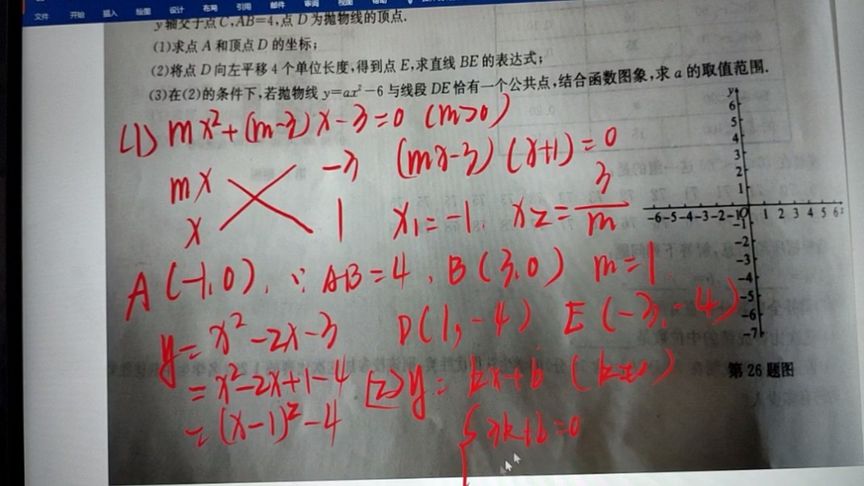 文件 开始 插入 绘图 设计 布局 引用 邮件 审阅 视图 帮助
y轴交于点C,AB=4,点D为抛物线的顶点.
(1)求点A和顶点D的坐标;
(2)将点D向左平移4个单位长度,得到点E,求直线BE的表达式;
(3)在(2)的条件下,若抛物线y=ax²-6与线段DE恰有一个公共点,结合函数图象,求a的取值范围.
(1) mx²+(m-3)x-3=0 (m>0)
mx -3 (mx-3)(x+1)=0
x 1 x₁=-1, x₂=3/m
A(-1,0), ∵AB=4, B(3,0) m=1
y=x²-2x-3 D(1,-4) E(-3,-4)
=x²-2x+1-4 (2) y=kx+b (k≠
=(x-1)²-4
{3k+b=0
y
6
5
4
3
2
1
-6-5-4-3-2-1O 1 2 3 4 5 6 x
-1
-2
-3
-4
-5
-6
-7
第26题图